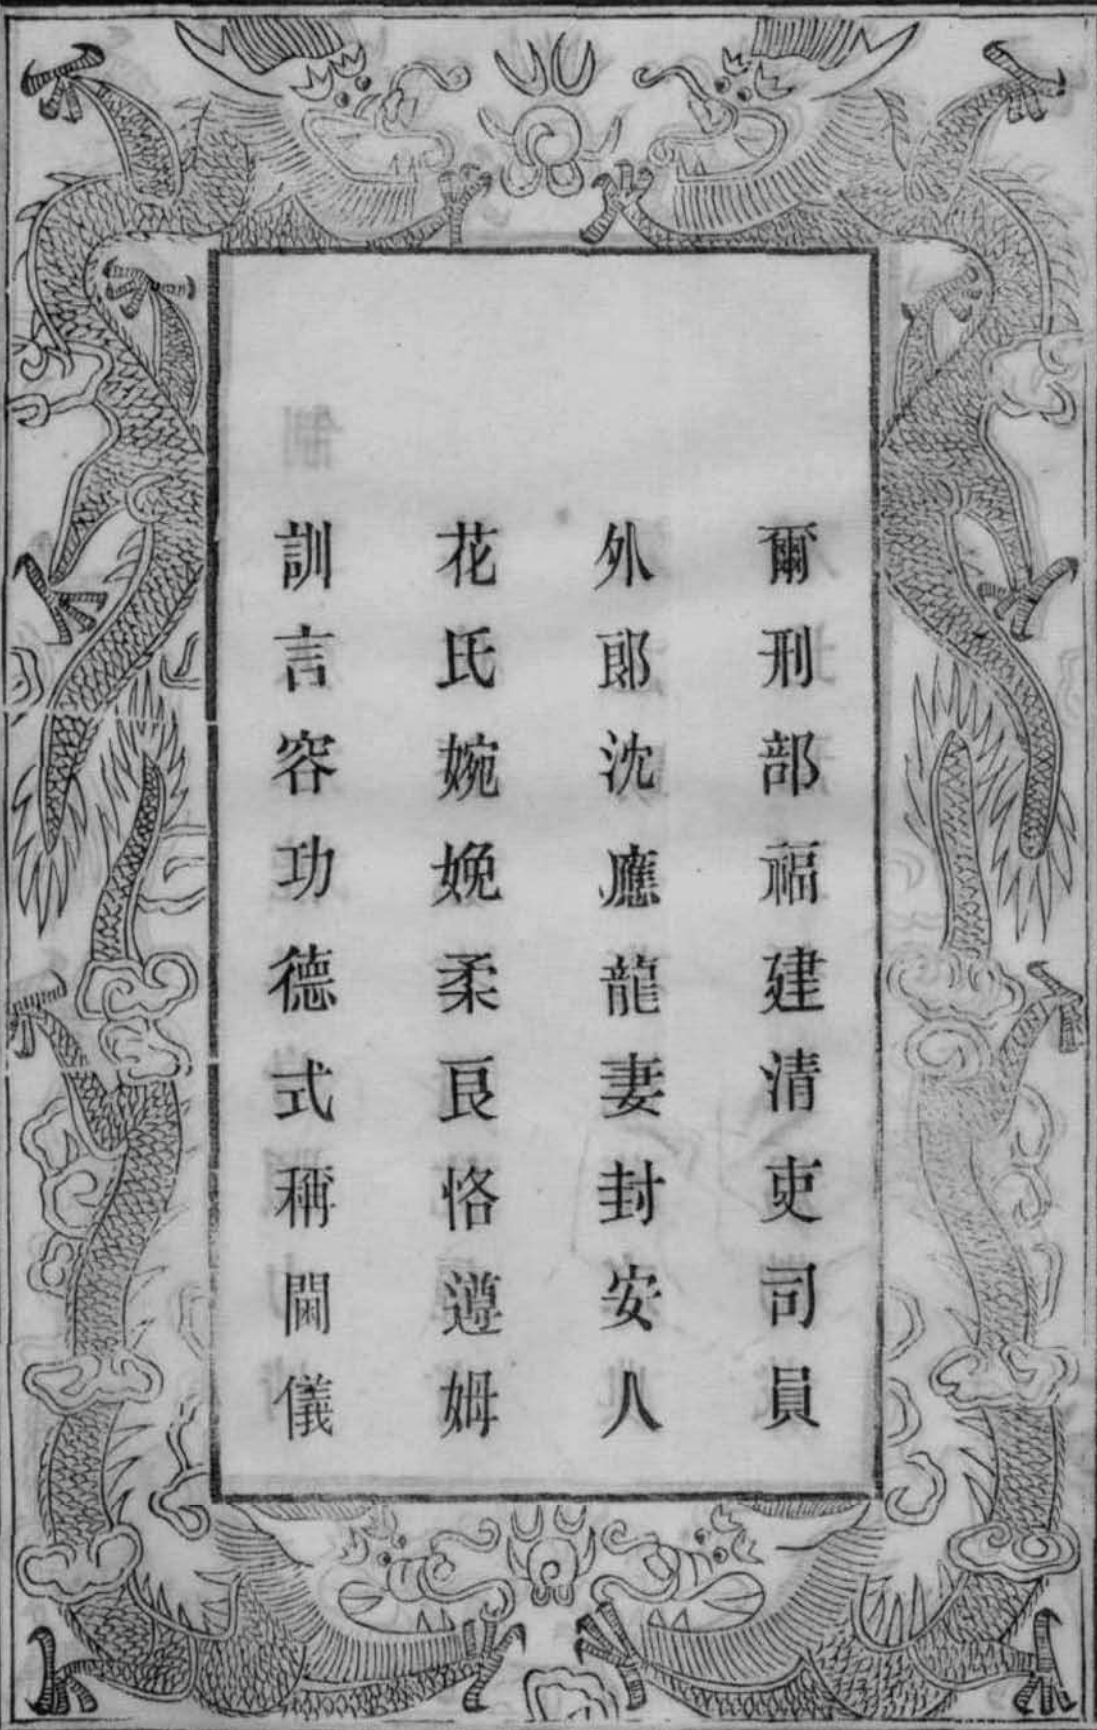 爾刑部福建清吏司員
外郎沈應龍妻封安人
花氏婉娩柔良恪遵姆
訓言容功德式稱閫儀